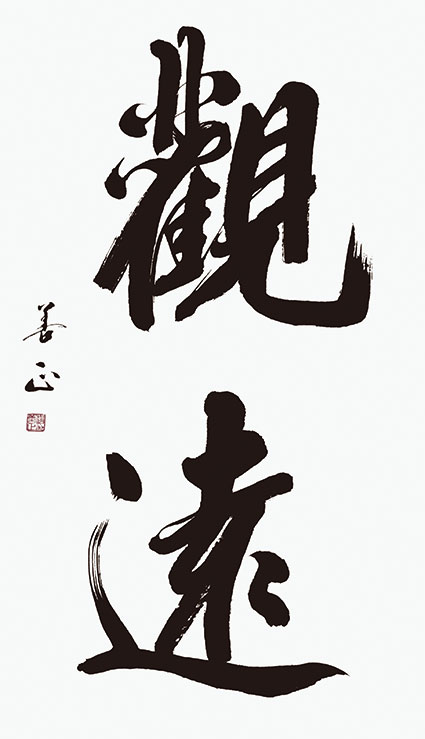 觀遠
善正